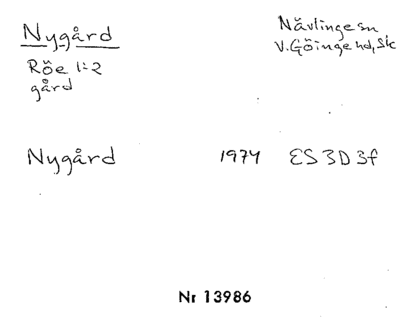 Nygård
Nävlinge sn
V.Göinge hd, Sk
Röe 1:2
gård
Nygård 1974 ES 3D 3f
Nr 13986